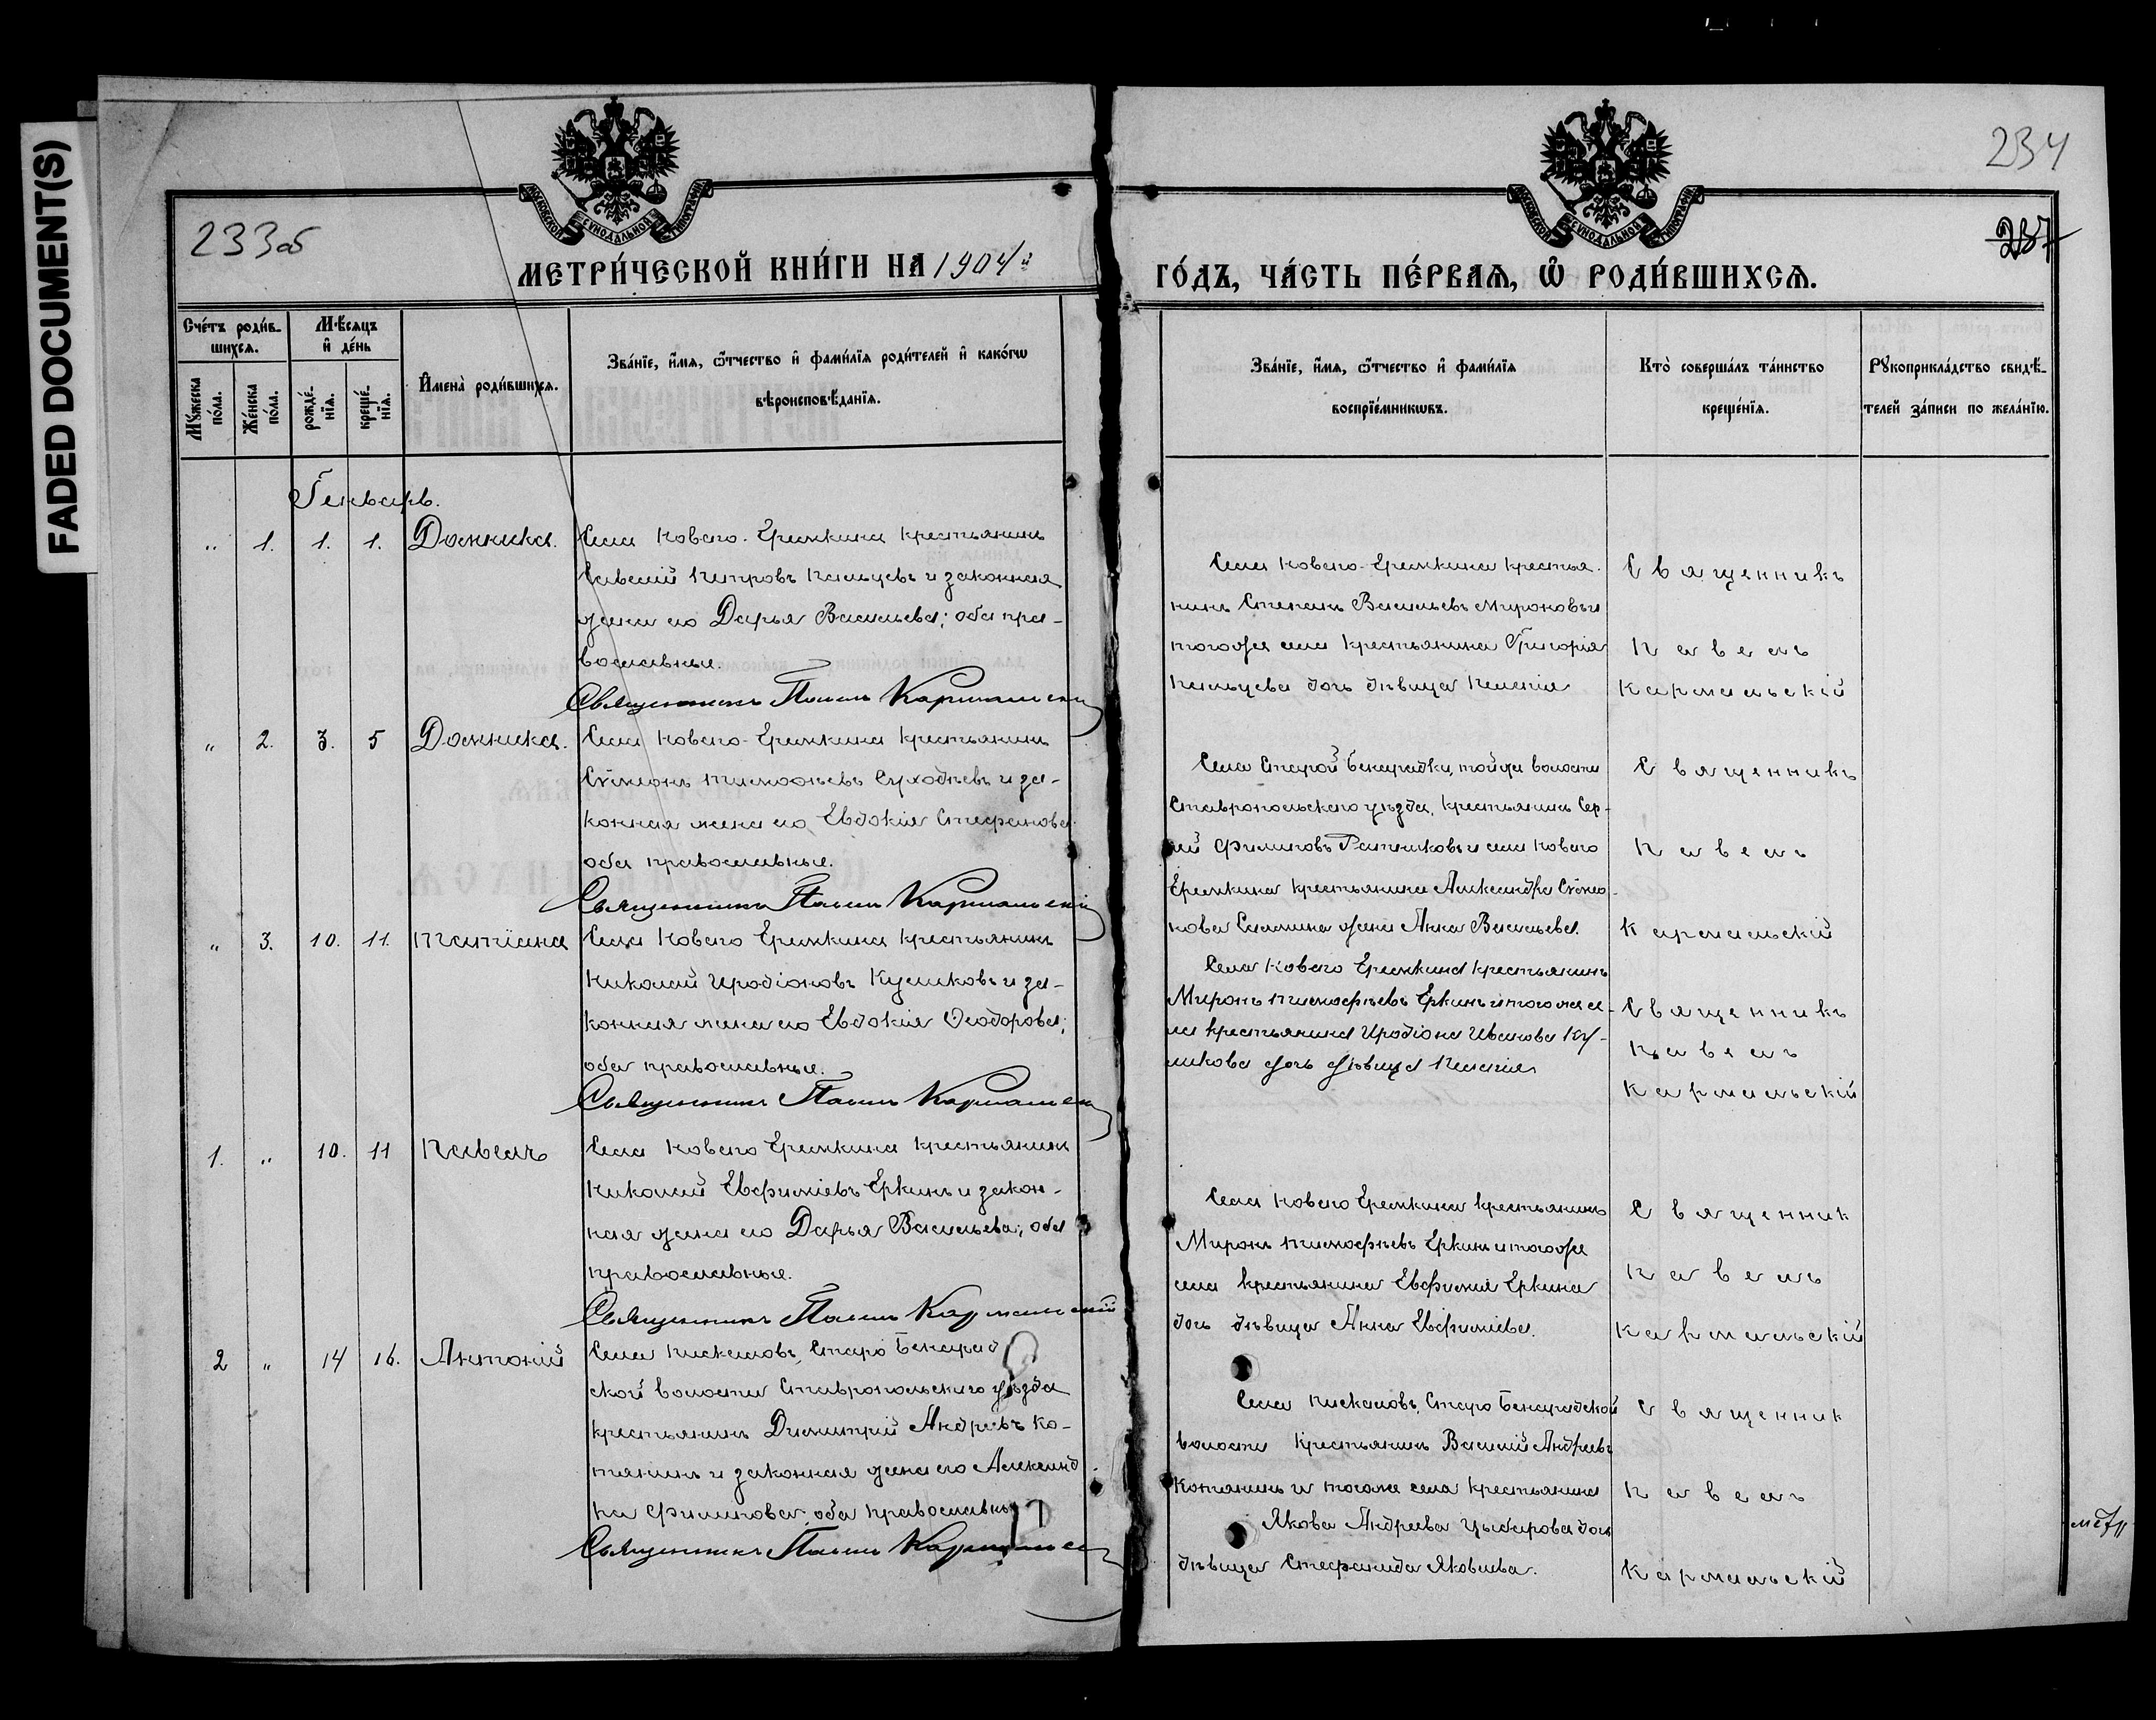 FADED DOCUMENT(S)
234
233об
237
МОСКОВСКОЙ СѴНОДАЛЬНОЙ ТИПОГРАФІИ
МОСКОВСКОЙ СѴНОДАЛЬНОЙ ТИПОГРАФІИ
МЕТРИ́ЧЕСКОЙ КНИ́ГИ НА 1904й
ГО́ДЪ, ЧА́СТЬ ПЕ́РВАѦ, Ѡ҆ РОДИ́ВШИХСѦ.
Сче́тъ роди́в-
шихсѧ.
Мѣ́сѧцъ
и҆ де́нь
Мꙋ́жеска
по́ла.
Же́нска
по́ла.
рожде́-
нїѧ.
креще́-
нїѧ.
И҆мена̀ роди́вшихсѧ.
Зва́нїе, и҆́мѧ, ѻ҆́тчество и҆ фами́лїѧ роди́телей и҆ како́гѡ
вѣроисповѣ́данїѧ.
Зва́нїе, и҆́мѧ, ѻ҆́тчество и҆ фами́лїѧ
воспрїе́мникѡвъ.
Кто̀ соверша́лъ та́инство
креще́нїѧ.
Рꙋкоприкла́дство свидѣ́-
телей за́писи по жела́нїю.
Генварь.
" 1. 1. 1. Домника. Села Новаго-Еремкина крестьянинъ
Савелій Петровъ Пальцевъ и законная
жена его Дарья Васильева; оба пра-
вославные.
Священникъ Павелъ Кармальскій
Села Новаго-Еремкина крестья-
нинъ Степанъ Васильевъ Мироновъ и
того же села крестьянина Григорія
Пальцева дочь дѣвица Пелагія
Священникъ
Павелъ
Кармальскій
" 2. 3. 5 Домника. Села Новаго-Еремкина крестьянинъ
Сѵмеонъ Тимофѣевъ Суходѣевъ и за-
конная жена его Евдокія Стефанова
оба православные.
Священникъ Павелъ Кармальскій
Села Старой Бинарадки, той же волости
Ставропольскаго уѣзда, крестьянинъ Сер-
гій Филиповъ и села Новаго
Еремкина крестьянина Александра Сѵмео-
нова жена Анна Васильева.
Священникъ
Павелъ
Кармальскій
" 3. 10. 11. Татіана Села Новаго Еремкина крестьянинъ
Николай Иродіоновъ Куликовъ и за-
конная жена его Евдокія Ѳеодорова;
оба православные.
Священникъ Павелъ Кармальскій
Села Новаго Еремкина крестьянинъ
Миронъ Тимофѣевъ Еркинъ и того же се-
ла крестьянина Иродіона Иванова Ку-
ликова дочь дѣвица Пелагія
Священникъ
Павелъ
Кармальскій
1. " 10. 11 Павелъ Села Новаго Еремкина крестьянинъ
Николай Евфиміевъ Еркинъ и закон-
ная жена его Дарья Васильева; оба
православные.
Священникъ Павелъ Кармальскій
Села Новаго Еремкина крестьянинъ
Миронъ Тимофѣевъ Еркинъ и того же
села крестьянина Евфимія Еркина
дочь дѣвица Анна Евфиміева.
Священник
Павелъ
Кармальскій
2 " 14 16. Антоній Села Пискаловъ, Старо Бинарад
ской волости Ставропольскаго уѣзда
крестьянинъ Димитрій Андреевъ Ко-
тянинъ и законная жена его Александ
ра Филипова, оба православны
Священникъ Павелъ Кармальск
Села Пискаловъ, Старо Бинарадской
волости крестьянинъ Василій Андреевъ
Котянинъ и того же села крестьянина
Якова Андреева дочь
дѣвица Стефанида Яковлева.
Священник
Павелъ
Кармальскій